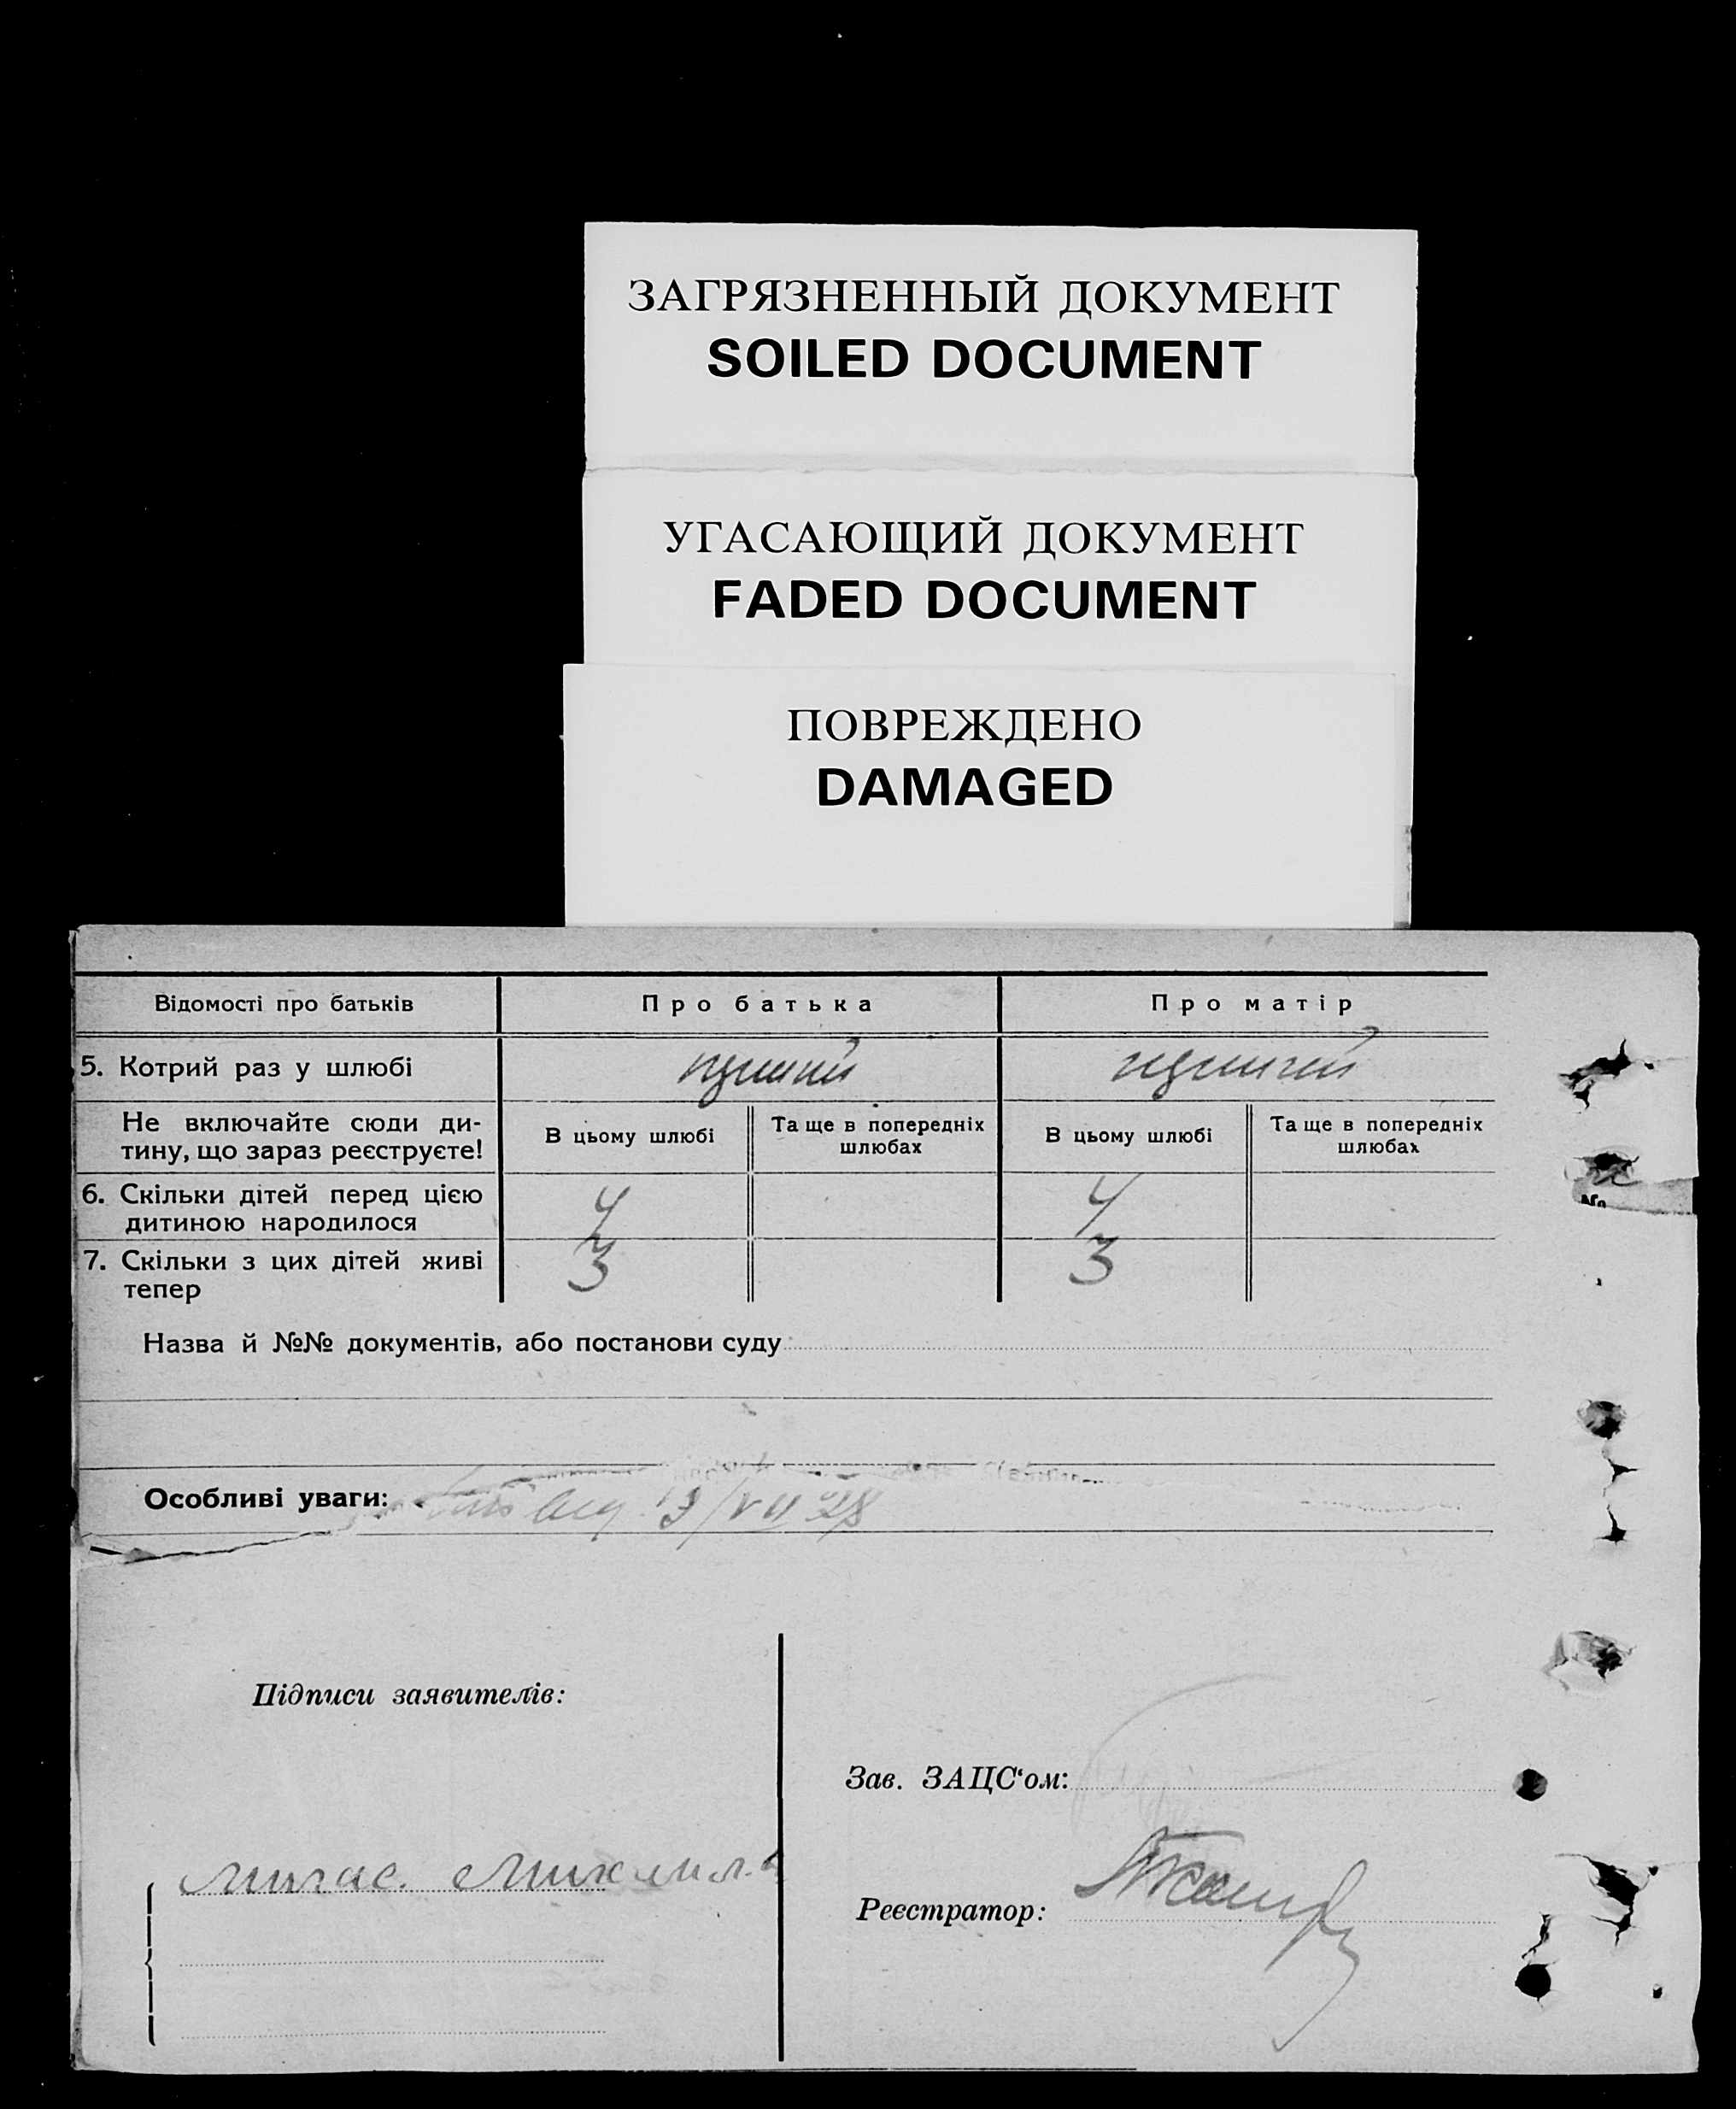 ЗАГРЯЗНЕННЫЙ ДОКУМЕНТ
SOILED DOCUMENT
УГАСАЮЩИЙ ДОКУМЕНТ
FADED DOCUMENT
ПОВРЕЖДЕНО
DAMAGED
Відомості про батьків
Про батька
Про матір
5. Котрий раз у шлюбі
Не включайте сюди ди-
тину, що зараз реєструєте!
В цьому шлюбі
Та ще в попередніх
шлюбах
В цьому шлюбі
Та ще в попередніх
шлюбах
6. Скільки дітей перед цією
дитиною народилося
4
4
7. Скільки з цих дітей живі
тепер
3
3
№
Назва й №№ документів, або постанови суду
Особливі уваги: /VII 28
Підписи заявителів:
Зав. ЗАЦС‘ом:
Реєстратор: